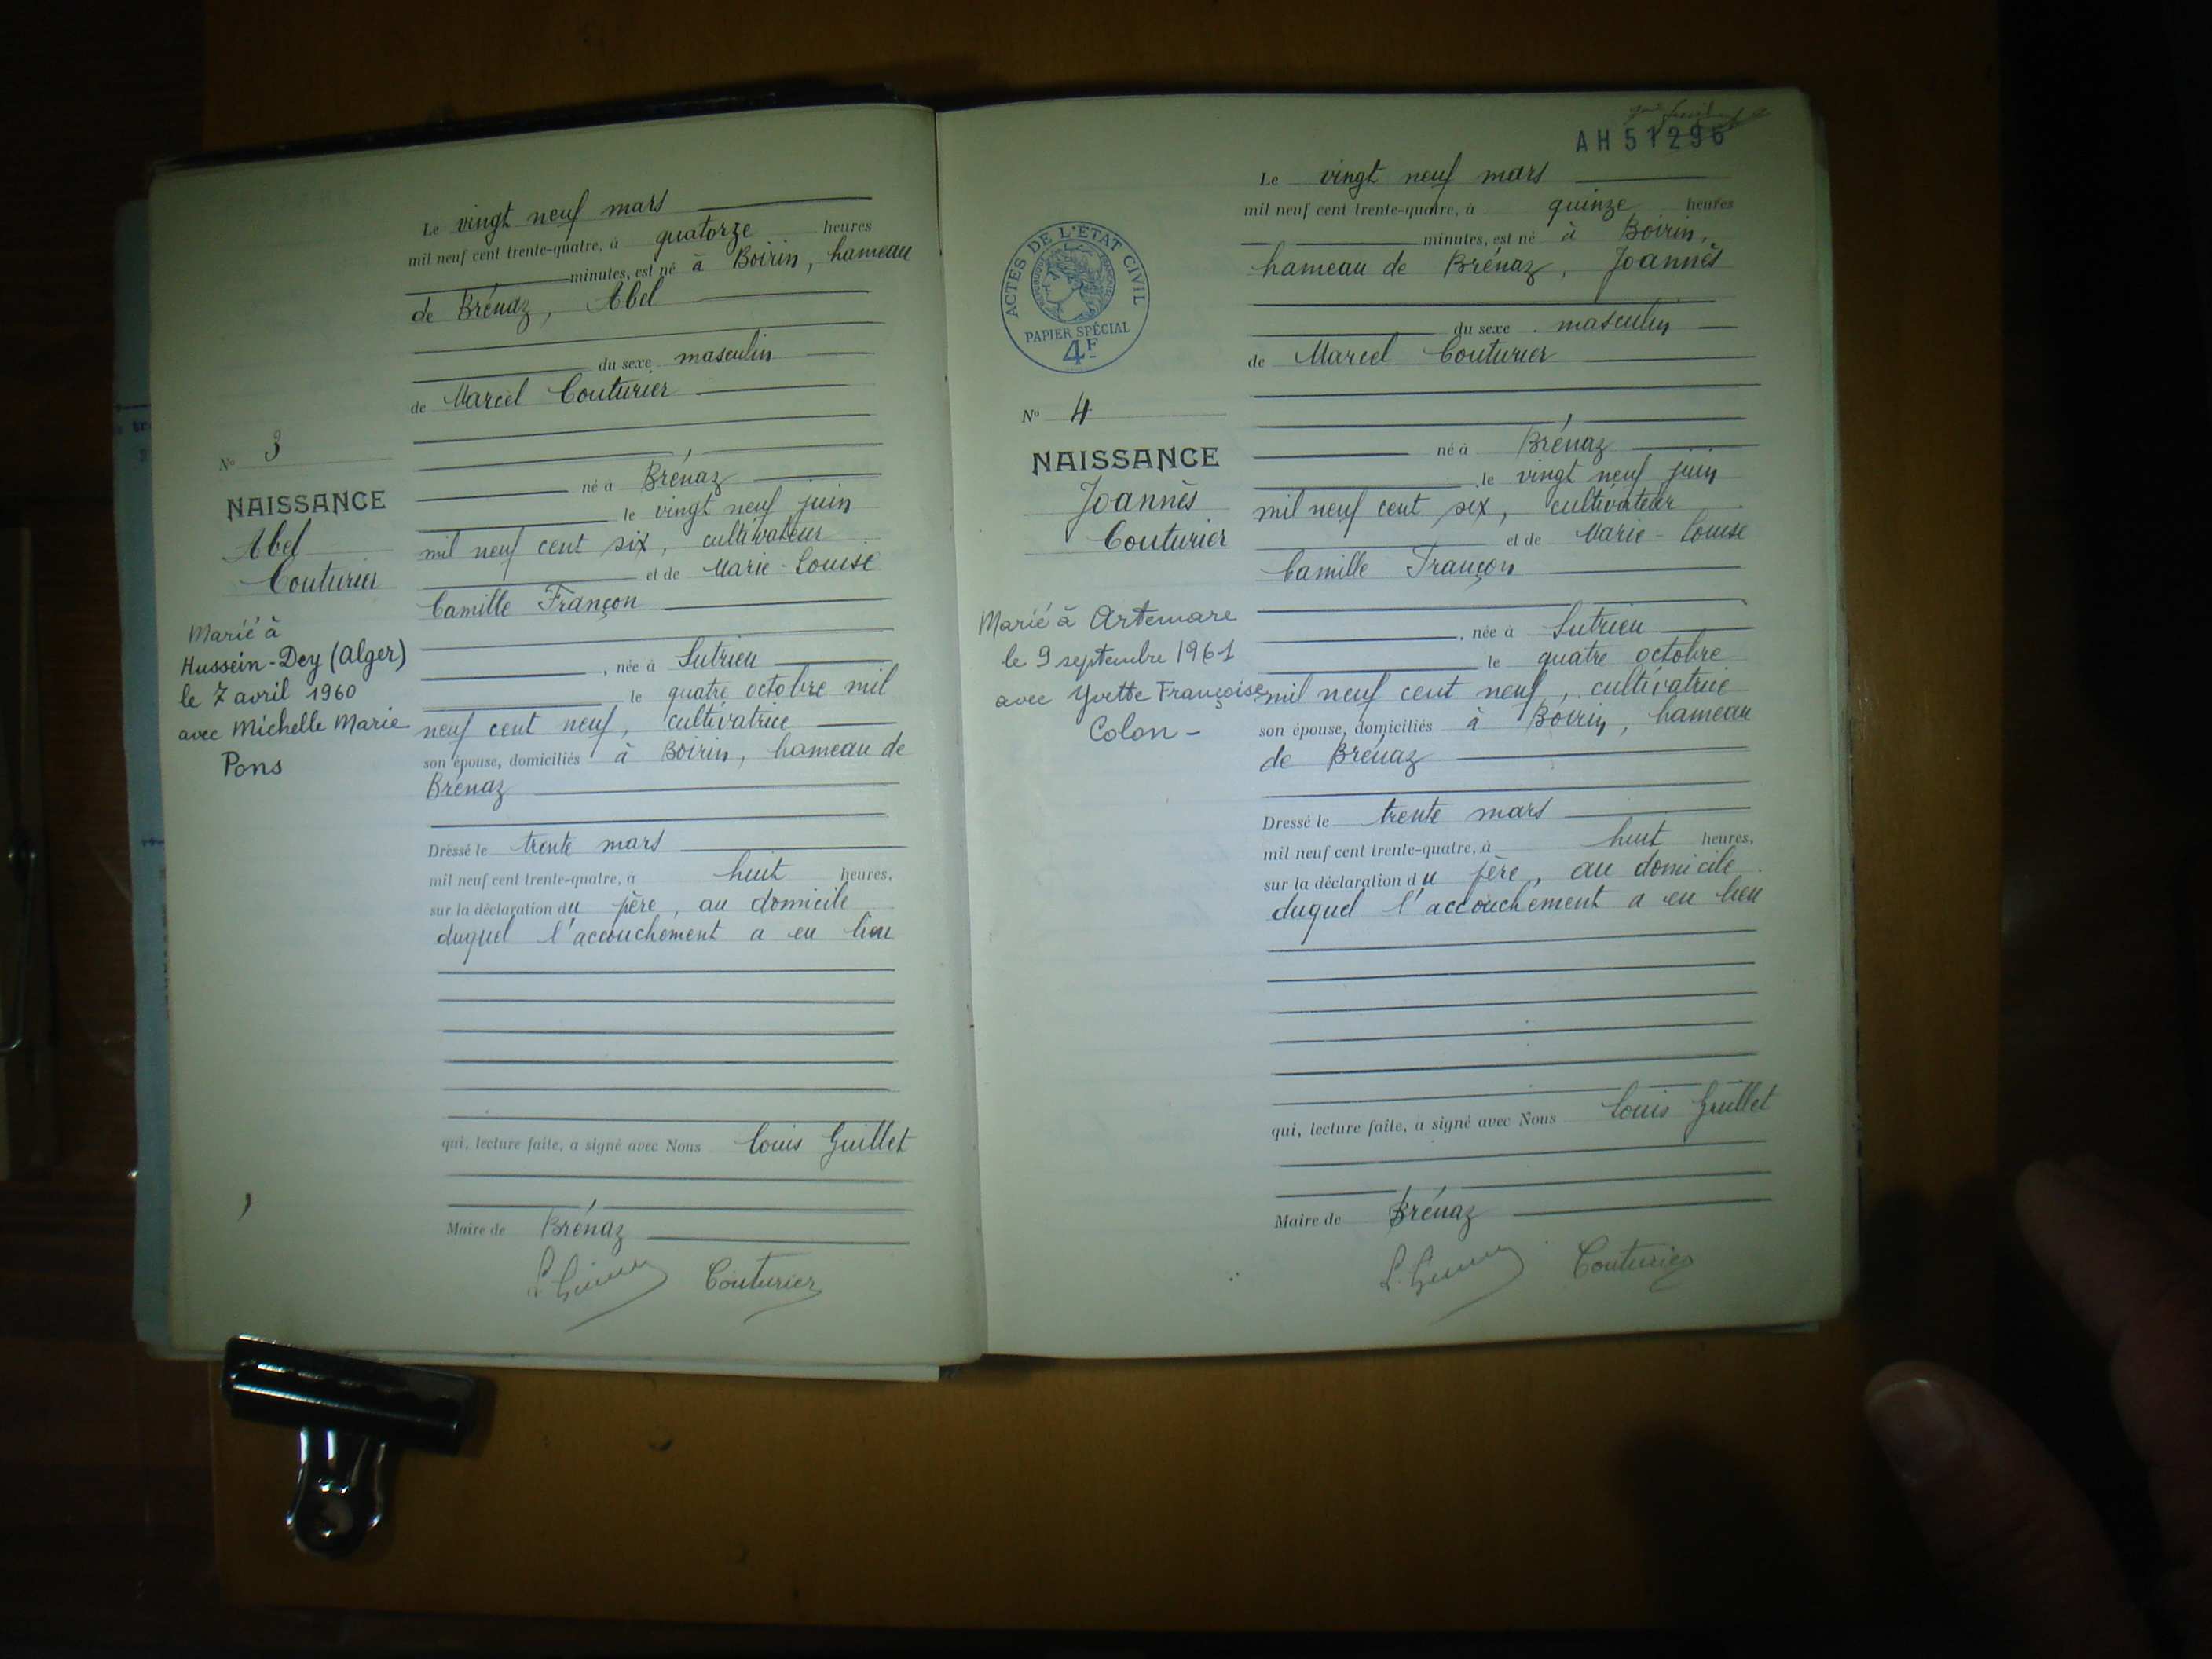 Le vingt neuf mars
mil neuf cent trente-quatre, à quatorze heures
minutes, est né à Boirin, hameau
de Brénaz, Abel
du sexe masculin
de Marcel Couturier
né à Brénaz
le vingt neuf juin
mil neuf cent six, cultivateur
et de Marie-Louise
Camille Françon
, née à Sutrieu
le quatre octobre mil
neuf cent neuf, cultivatrice
son épouse, domiciliés à Boirin, hameau de
Brénaz
Dressé le trente mars
mil neuf cent trente-quatre, à huit heures,
sur la déclaration du père, au domicile
duquel l'accouchement a eu lieu
qui, lecture faite, a signé avec Nous Louis Guillet
Maire de Brénaz
Couturier
No 3
NAISSANCE
Abel
Couturier
Marié à
Hussein-Dey (Alger)
le 7 avril 1960
avec Michelle Marie
Pons
AH51296
Le vingt neuf mars
mil neuf cent trente-quatre, à quinze heures
minutes, est né à Boirin,
hameau de Brénaz, Joannès
du sexe masculin
de Marcel Couturier
né à Brénaz
le vingt neuf juin
mil neuf cent six, cultivateur
et de Marie-Louise
Camille Françon
, née à Sutrieu
le quatre octobre
mil neuf cent neuf, cultivatrice
son épouse, domiciliés à Boirin, hameau
de Brénaz
Dressé le trente mars
mil neuf cent trente-quatre, à huit heures,
sur la déclaration du père, au domicile
duquel l'accouchement a eu lieu
qui, lecture faite, a signé avec Nous Louis Guillet
Maire de Brénaz
Couturier
ACTES DE L'ÉTAT CIVIL
RÉPUBLIQUE FRANÇAISE
PAPIER SPÉCIAL
4F
No 4
NAISSANCE
Joannès
Couturier
Marié à Artemare
le 9 septembre 1961
avec Yvette Françoise
Colon -